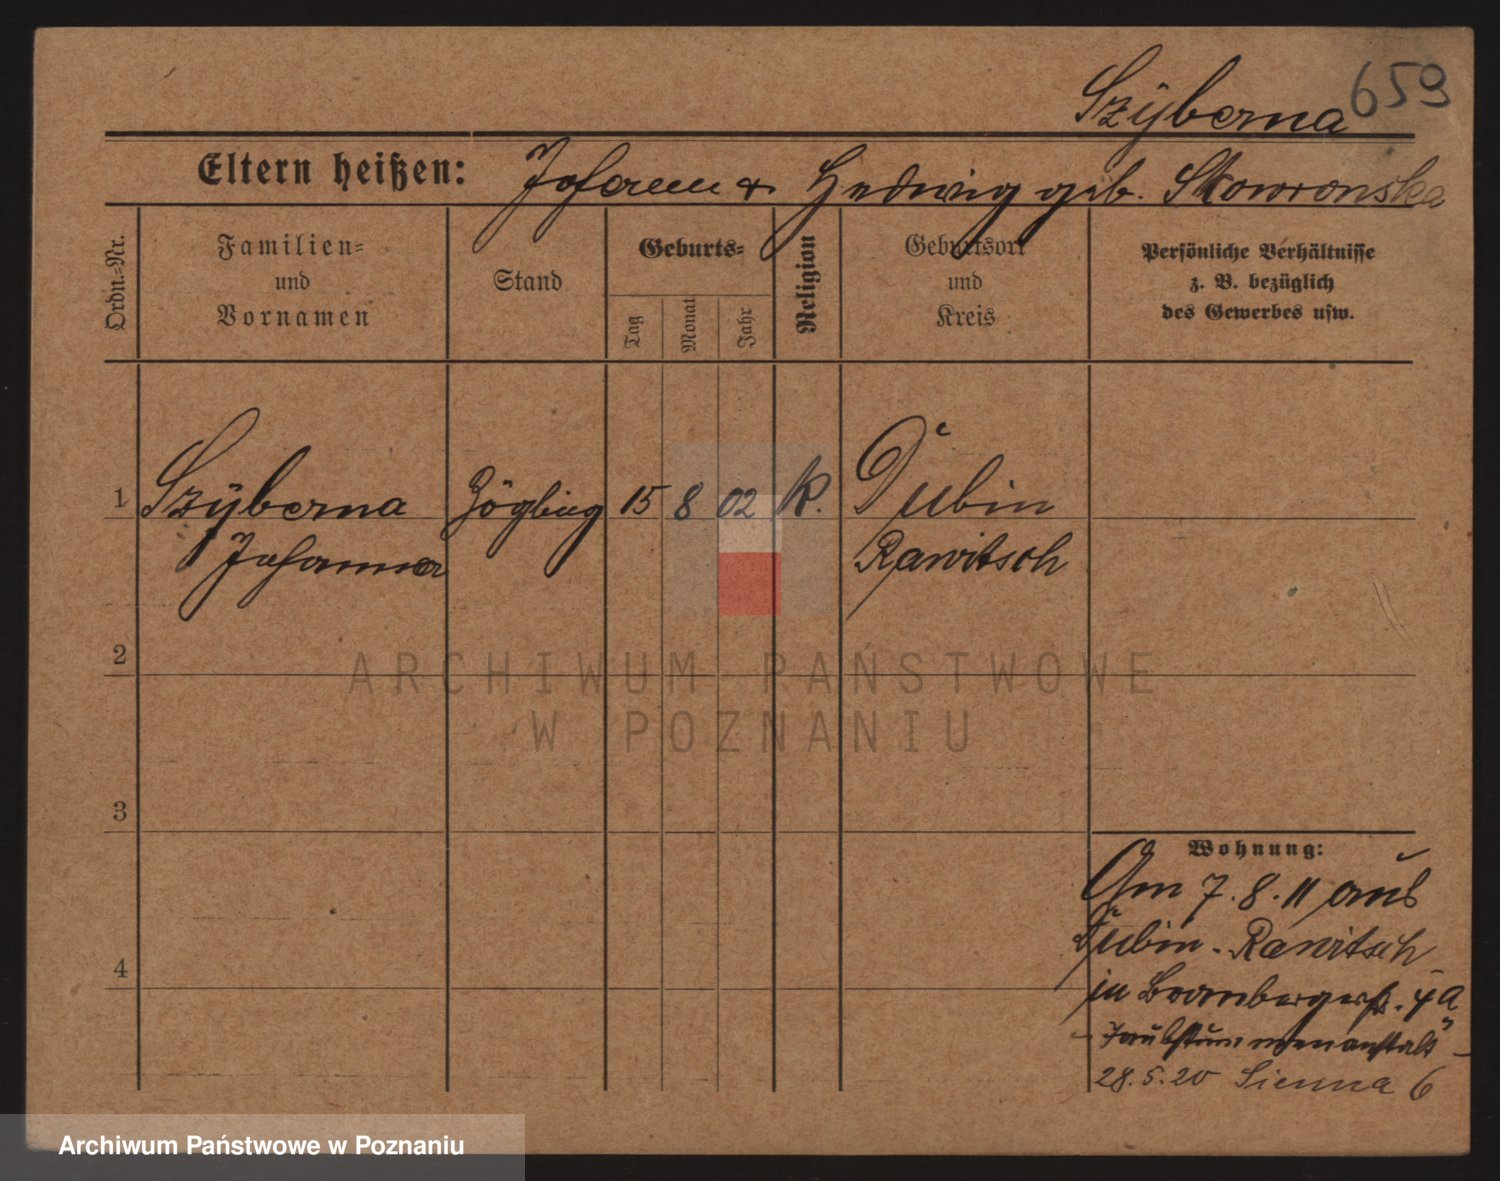 659
Szÿberna
Eltern heißen: Johann & Hedwig geb. Skowronska
Ordn.=Nr.
Familien=
und
Vornamen
Stand
Geburts=
Tag
Monat
Jahr
Religion
Geburtsort
und
Kreis
Persönliche Verhältnisse
z. B. bezüglich
des Gewerbes usw.
1 Szÿberna Zögling 15 8 02 K. Dubin
Johanna Rawitsch
2
3
4
Wohnung:
Am 7.8.11 aus
Dubin-Rawitsch
in Brombergerstr. 4a
"Taubstummenanstalt"
28.5.20 Sienna 6
ARCHIWUM PAŃSTWOWE
W POZNANIU
Archiwum Państwowe w Poznaniu